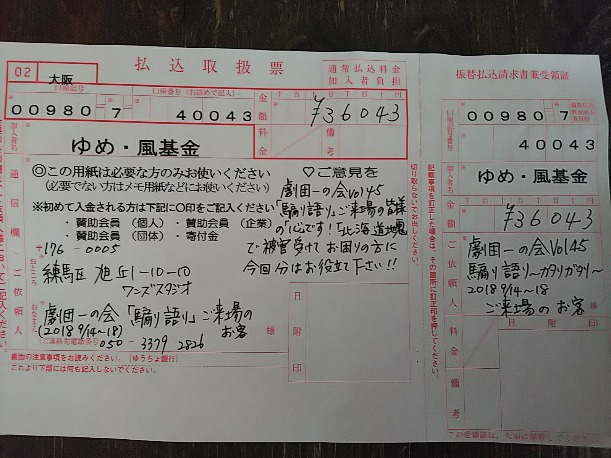 02
大阪
払込取扱票
通常払込料金
加入者負担
口座記号
口座番号（右詰めで記入）
00980
7
40043
金額
千 百 十 万 千 百 十 円
¥36043
加入者名
ゆめ・風基金
料金
備考
◎この用紙は必要な方のみお使いください
（必要でない方はメモ用紙などにお使いください）
※初めて入金される方は下記に〇印をご記入ください
・賛助会員（個人）・賛助会員（企業）
・賛助会員（団体）・寄付金
♡ご意見を
劇団一の会Vol45
「騙り語り」ご来場の皆様
の"心"です！北海道地震
で被害受けてお困りの方に
今回分はお役立て下さい!!
通信欄・ご依頼人
〒176-0005
おところ
練馬区旭丘1-10-10
ワンズスタジオ
おなまえ
劇団一の会「騙り語り」ご来場の
(2018 9/14~18)
お客
様
ご連絡先電話番号
050-3379 2826
日附印
裏面の注意事項をお読みください。（ゆうちょ銀行）
これより下部には何も記入しないでください。
切り取らないでお出しください。
振替払込請求書兼受領証
口座記号番号
00980
7
通常払込料金加入者負担
40043
加入者名
ゆめ・風基金
金額
千 百 十 万 千 百 十 円
¥36043
ご依頼人
劇団一の会Vol45
騙り語り〜カタリガタリ〜
2018 9/14~18
ご来場のお客
様
料金
備考
日附印
記載事項を訂正した場合は、その箇所に訂正印を押してください。
この受領証は、大切に保管してください。